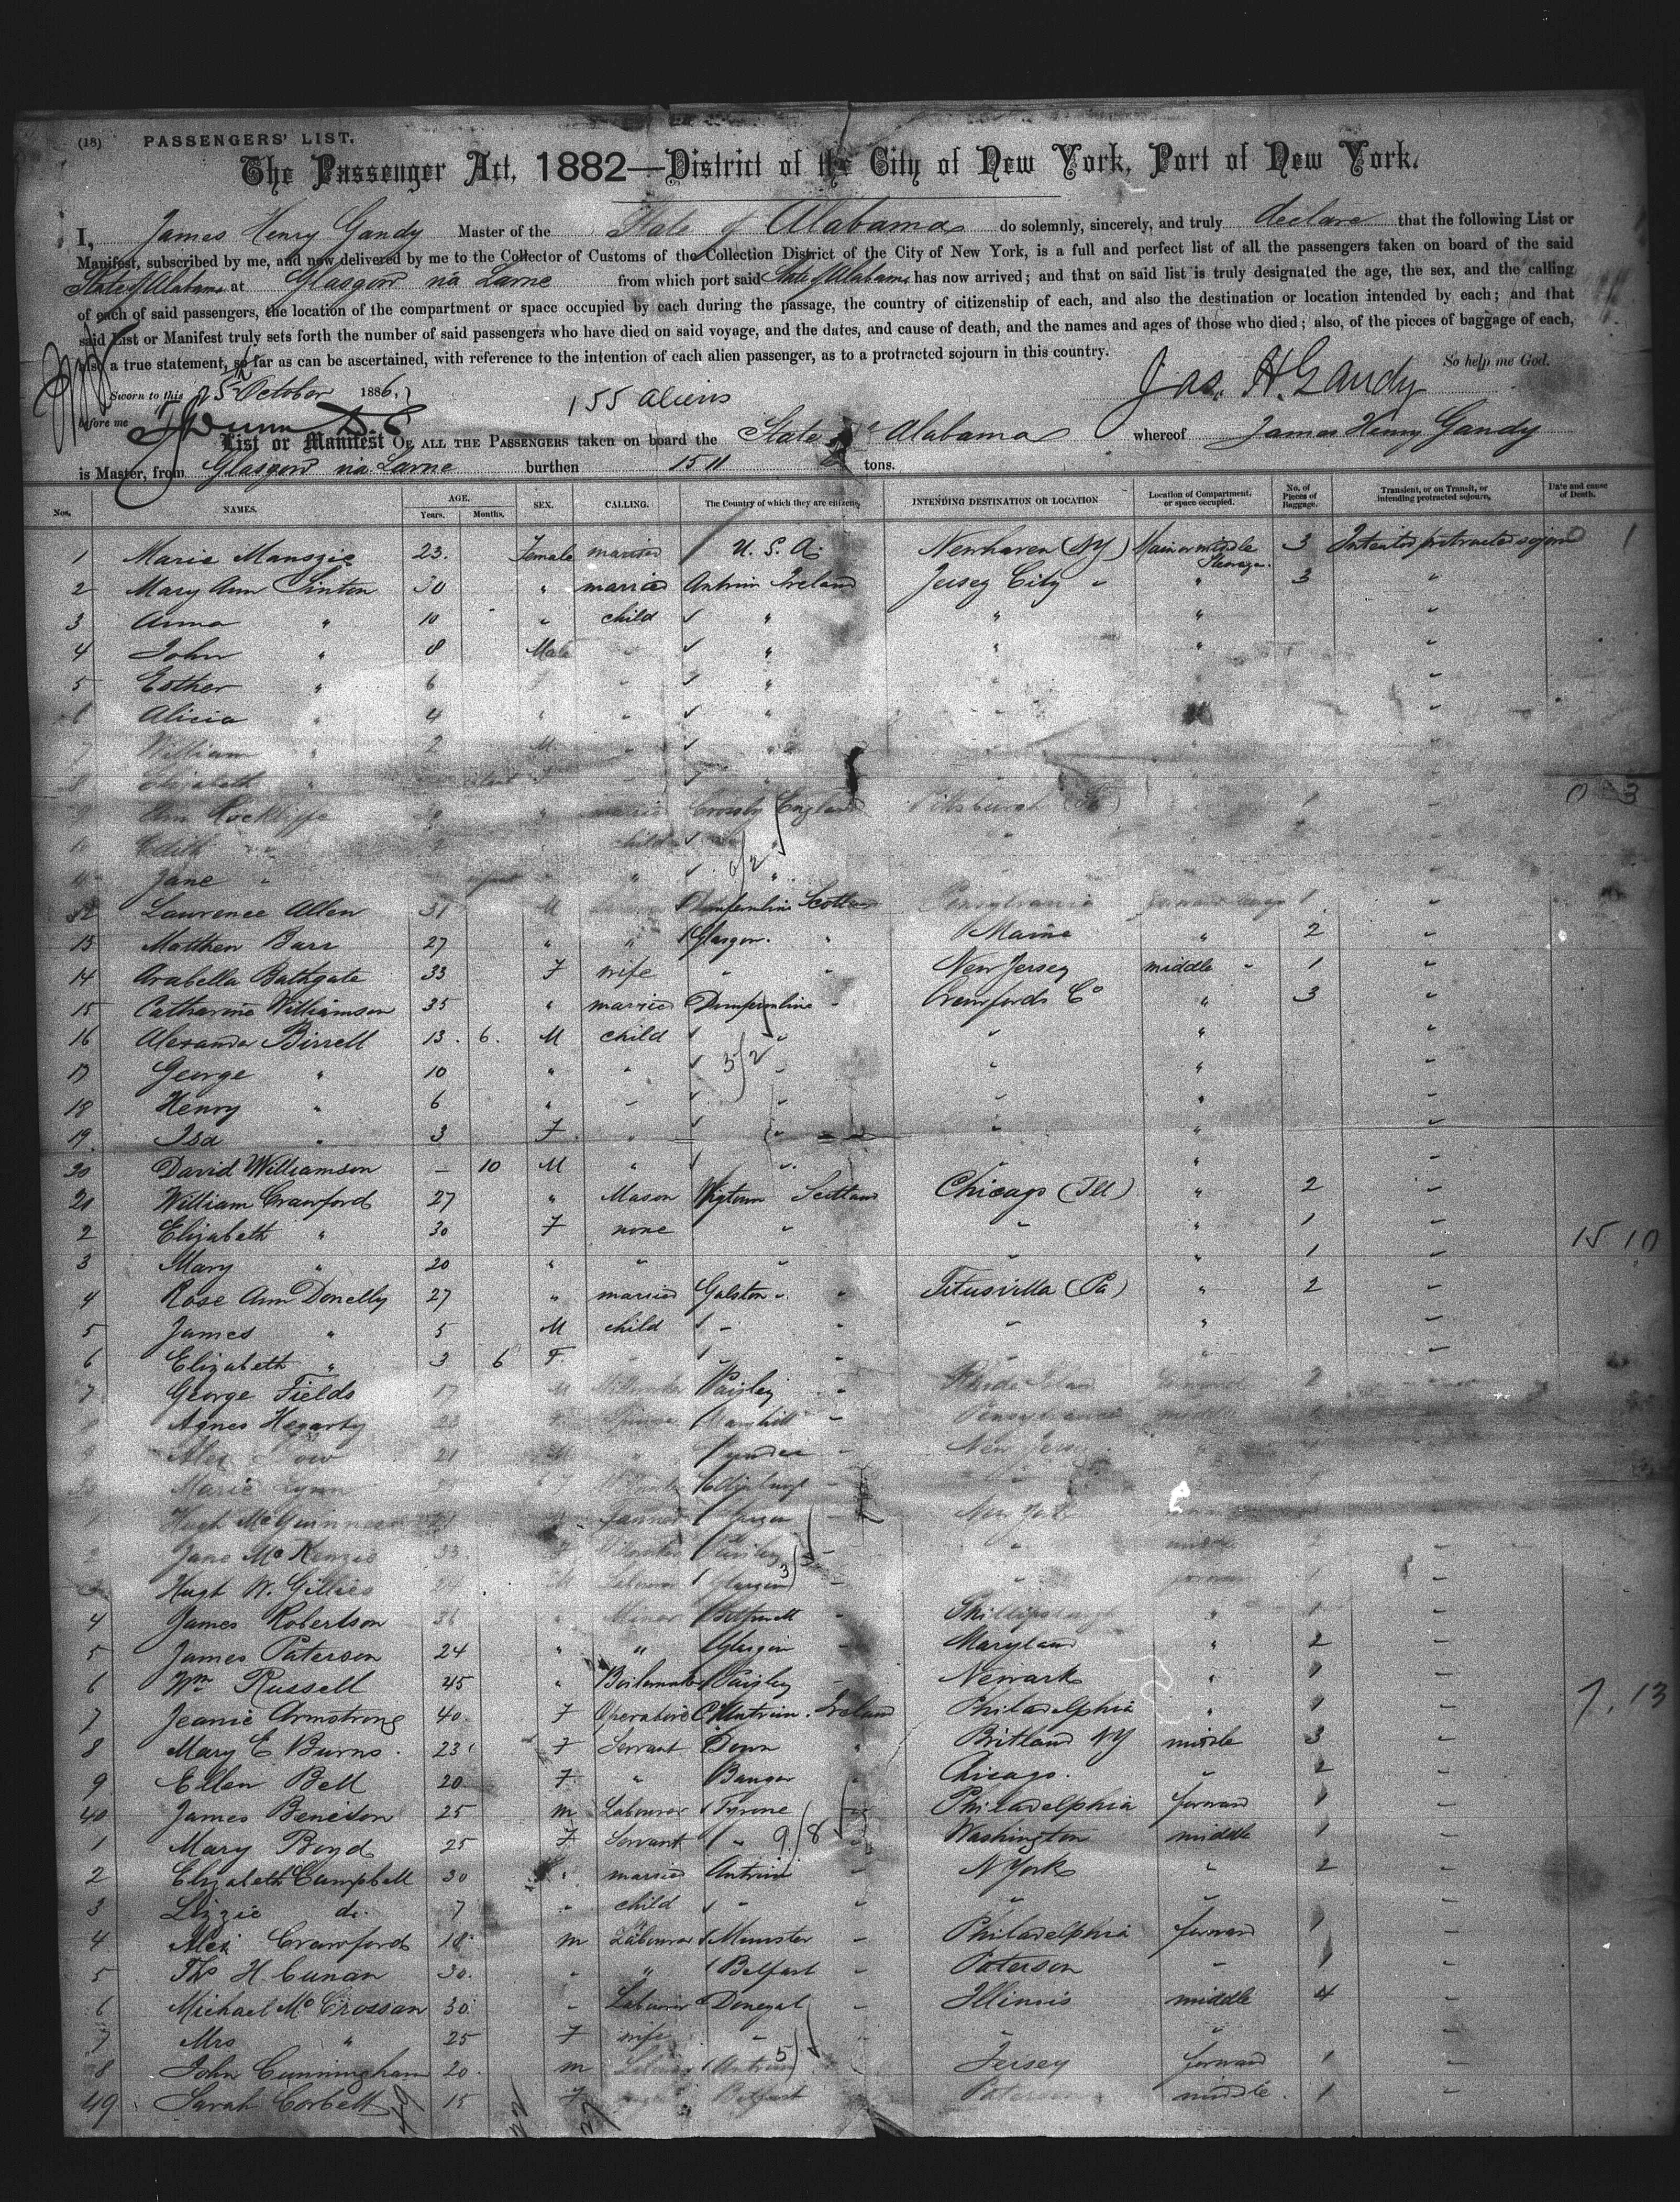 (18) PASSENGERS' LIST.
The Passenger Act, 1882—District of the City of New York, Port of New York.
I, James Henry Gandy Master of the State of Alabama do solemnly, sincerely, and truly declare that the following List or
Manifest, subscribed by me, and now delivered by me to the Collector of Customs of the Collection District of the City of New York, is a full and perfect list of all the passengers taken on board of the said
State of Alabama at Glasgow via Larne from which port said State of Alabama has now arrived; and that on said list is truly designated the age, the sex, and the calling
of each of said passengers, the location of the compartment or space occupied by each during the passage, the country of citizenship of each, and also the destination or location intended by each; and that
said List or Manifest truly sets forth the number of said passengers who have died on said voyage, and the dates, and cause of death, and the names and ages of those who died; also, of the pieces of baggage of each,
also a true statement, so far as can be ascertained, with reference to the intention of each alien passenger, as to a protracted sojourn in this country. So help me God.
Jas. H. Gandy
Sworn to this 25th October 1886,
155 aliens
before me
List or Manifest OF ALL THE PASSENGERS taken on board the State of Alabama whereof James Henry Gandy
is Master, from Glasgow via Larne burthen 1511 tons.
Nos. NAMES. AGE. Years. Months. SEX. CALLING. The Country of which they are citizens, INTENDING DESTINATION OR LOCATION Location of Compartment, or space occupied. No. of Pieces of Baggage. Transient, or on Transit, or intending protracted sojourn, Date and cause of Death.
1 Marie 23. Female married U. S. A. Newhaven (NY) Main or middle Steerage. 3 Intended protracted sojourn 0 1
2 Mary Ann Linton 30 " married Antrim Ireland Jersey City " " 3 "
3 Anna " 10 " child " " " "
4 John " 8 Male " " " " "
5 Esther " 6 " " "
6 Alicia " 4 " " " "
7 William " 2 M "
8 Elizabeth " infant " 0 3
9 Ann Rockliffe England Pittsburgh (Pa) 1
10 Edith " 2 child
11 Jane " infant " "
12 Lawrence Allen 31 M Dumfermline Scotland Pensylvania 1 "
13 Matthew Barr 27 " " Glasgow. " Maine " 2 "
14 Arabella Bathgate 33 F wife " " New Jersey middle " 1 "
15 Catharine Williamson 35 " married Dumfermline " Crawfords Co " 3 "
16 Alexander Birrell 13. 6. M child " " " "
17 George " 10 " " 5/2 " " " "
18 Henry " 6 " " " " " "
19. Isa " 3 F " " " " "
20 David Williamson — 10 M " " " "
21 William Crawford 27 " Mason Wigtown Scotland Chicago (Ill) " 2 "
2 Elizabeth " 30 F none " " " 1 " 15 10
3 Mary " 20 " " " " " 1 "
4 Rose Ann Donelly 27 " married Galston " " Titusvilla (Pa) " 2 "
5 James " 5 M child " " " " "
6 Elizabeth " 3 6 F. " " " "
7 George Fields 17 M Paisley " 2
8 Agnes Hegarty 23 F Maryhill " Pensylvania
9 Alex 21 M " New Jersey
Marie Lynn F
1 Hugh McGuinness Farmer New York
2 Jane McKenzie 33 F Paisley " middle 2 "
3 Hugh W. Gillies M Labourer Glasgow " forward 1 "
4 James Robertson 36 " Miner " Phillipsburgh " 1 "
5 James Paterson 24 " " Glasgow " Maryland " 2 "
6 Wm Russell 45 " Boilermaker Paisley " Newark " 1 "
7 Jeanie Armstrong 40. F Operative Antrim. Ireland Philadelphia " 1 " 7. 13
8 Mary E Burns. 23 F Servant Down " NY middle 3 "
9 Ellen Bell 20 F " Bangor " Chicago. " 2 "
40 James 25 m Labourer Tyrone " Philadelphia forward 1 "
1 Mary Boyd 25 F Servant " 9/8 " Washington middle 1 "
2 Elizabeth Campbell 30 " married Antrim " N York " 2 "
3 Lizzie do. 7 " child " " " " "
4 Alex Crawford 18 m Labourer Munster " Philadelphia forward 1 "
5 Ths H. Cunan 30. " " Belfast " Paterson " 1 "
6 Michael McCrossan 30 " Labourer Donegal " Illinois middle 4 "
7 Mrs " 25 F wife " " " " "
8 John Cunningham 20. m Antrim " Jersey forward 1 "
49 Sarah Corbett 15 F Belfast Paterson middle. 1 "
49 22 27